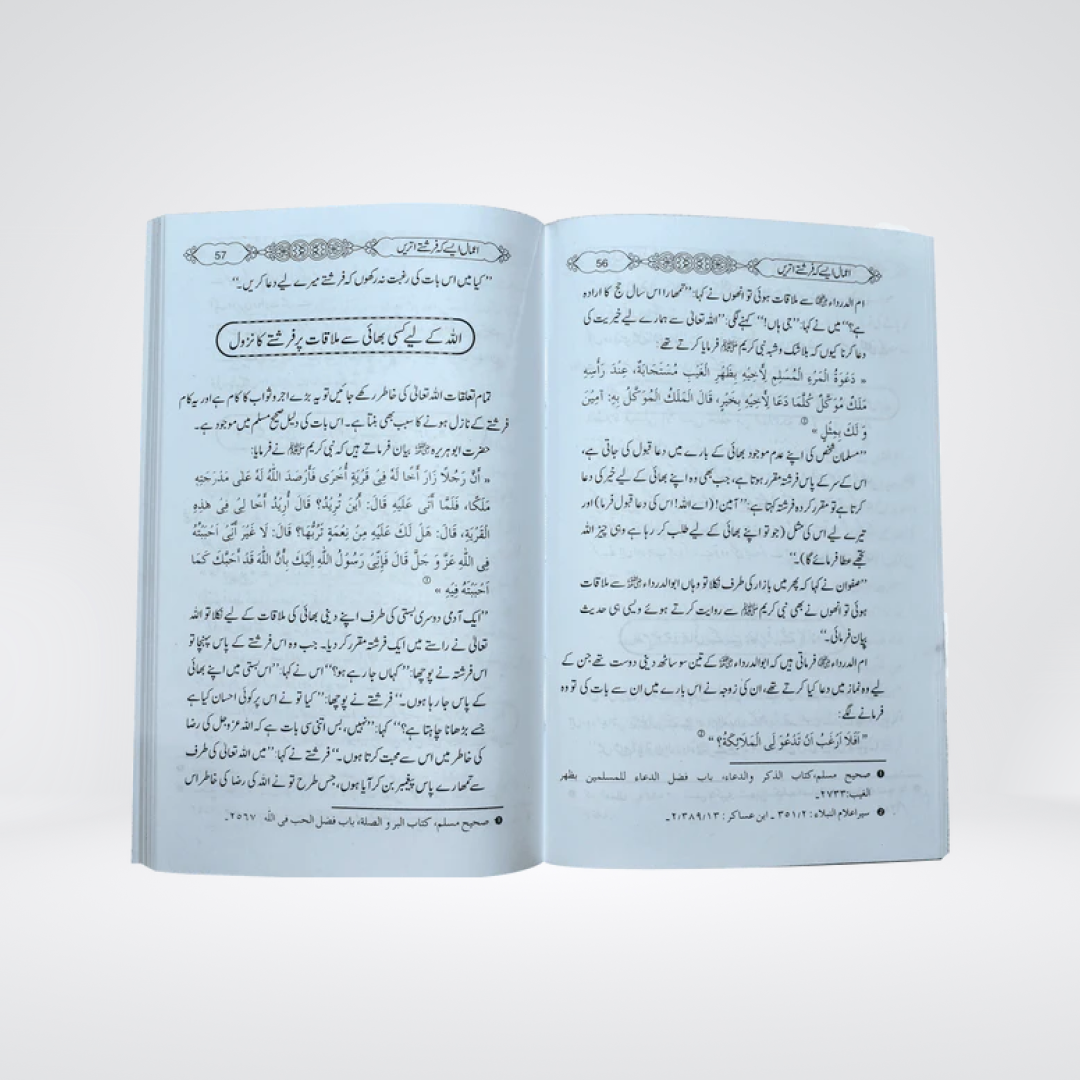 اعمال ایسے کہ فرشتے اتریں
56
ام الدرداء رضی اللہ عنہا سے ملاقات ہوئی تو انھوں نے کہا: ’’تمھارا اس سال حج کا ارادہ
ہے؟‘‘ میں نے کہا: ’’جی ہاں!‘‘ کہنے لگی: ’’اللہ تعالیٰ سے ہمارے لیے خیریت کی
دعا کرنا کیوں کہ بلاشک و شبہ نبی کریم ﷺ فرمایا کرتے تھے:
« دَعْوَةُ الْمَرْءِ الْمُسْلِمِ لِأَخِيْهِ بِظَهْرِ الْغَيْبِ مُسْتَجَابَةٌ، عِنْدَ رَأْسِهٖ
مَلَكٌ مُوَكَّلٌ كُلَّمَا دَعَا لِأَخِيْهِ بِخَيْرٍ، قَالَ الْمَلَكُ الْمُوَكَّلُ بِهٖ: آمِيْنَ
وَ لَكَ بِمِثْلٍ » ①
’’مسلمان شخص کی اپنے عدم موجود بھائی کے بارے میں دعا قبول کی جاتی ہے،
اس کے سر کے پاس فرشتہ مقرر ہوتا ہے، جب بھی وہ اپنے بھائی کے لیے خیر کی دعا
کرتا ہے تو مقرر کردہ فرشتہ کہتا ہے: ’’آمین! (اے اللہ! اس کی دعا قبول فرما) اور
تیرے لیے اس کی مثل (جو تو اپنے بھائی کے لیے طلب کر رہا ہے وہی چیز اللہ
تجھے عطا فرمائے گا)۔‘‘
’’صفوان نے کہا کہ پھر میں بازار کی طرف نکلا تو وہاں ابوالدرداء رضی اللہ عنہ سے ملاقات
ہوئی تو انھوں نے بھی نبی کریم ﷺ سے روایت کرتے ہوئے ویسی ہی حدیث
بیان فرمائی۔‘‘
ام الدرداء رضی اللہ عنہا فرماتی ہیں کہ ابوالدرداء رضی اللہ عنہ کے تین سو ساٹھ دینی دوست تھے جن کے
لیے وہ نماز میں دعا کیا کرتے تھے، ان کی زوجہ نے اس بارے میں ان سے بات کی تو وہ
فرمانے لگے:
" أَفَلَا أَرْغَبُ أَنْ تَدْعُوَ لِي الْمَلَائِكَةُ؟ " ②
① صحیح مسلم، کتاب الذکر والدعاء، باب فضل الدعاء للمسلمین بظهر
الغیب: ٢٧٣٣۔
② سیر اعلام النبلاء: ٣٥١/٢ ۔ ابن عساکر: ٢/٣٨٩/١٣۔
اعمال ایسے کہ فرشتے اتریں
57
’’کیا میں اس بات کی رغبت نہ رکھوں کہ فرشتے میرے لیے دعا کریں۔‘‘
اللہ کے لیے کسی بھائی سے ملاقات پر فرشتے کا نزول
تمام تعلقات اللہ تعالیٰ کی خاطر رکھے جائیں تو یہ بڑے اجر و ثواب کا کام ہے اور یہ کام
فرشتے کے نازل ہونے کا سبب بھی بنتا ہے۔ اس بات کی دلیل صحیح مسلم میں موجود ہے۔
حضرت ابوہریرہ رضی اللہ عنہ بیان فرماتے ہیں کہ نبی کریم ﷺ نے فرمایا:
« أَنَّ رَجُلًا زَارَ أَخًا لَهٗ فِيْ قَرْيَةٍ أُخْرَى فَأَرْصَدَ اللّٰهُ لَهٗ عَلٰى مَدْرَجَتِهٖ
مَلَكًا، فَلَمَّا أَتٰى عَلَيْهِ قَالَ: أَيْنَ تُرِيْدُ؟ قَالَ أُرِيْدُ أَخًا لِيْ فِيْ هٰذِهِ
الْقَرْيَةِ، قَالَ: هَلْ لَكَ عَلَيْهِ مِنْ نِعْمَةٍ تَرُبُّهَا؟ قَالَ: لَا غَيْرَ أَنِّيْ أَحْبَبْتُهٗ
فِي اللّٰهِ عَزَّ وَ جَلَّ قَالَ فَإِنِّيْ رَسُوْلُ اللّٰهِ إِلَيْكَ بِأَنَّ اللّٰهَ قَدْ أَحَبَّكَ كَمَا
أَحْبَبْتَهٗ فِيْهِ » ①
’’ایک آدمی دوسری بستی کی طرف اپنے دینی بھائی کی ملاقات کے لیے نکلا تو اللہ
تعالیٰ نے راستے میں ایک فرشتہ مقرر کر دیا۔ جب وہ اس فرشتے کے پاس پہنچا تو
اس فرشتہ نے پوچھا: ’’کہاں جا رہے ہو؟‘‘ اس نے کہا: ’’اس بستی میں اپنے بھائی
کے پاس جا رہا ہوں۔‘‘ فرشتے نے پوچھا: ’’کیا تو نے اس پر کوئی احسان کیا ہے
جسے بڑھانا چاہتا ہے؟‘‘ کہا: ’’نہیں، بس اتنی سی بات ہے کہ اللہ عزوجل کی رضا
کی خاطر میں اس سے محبت کرتا ہوں۔‘‘ فرشتے نے کہا: ’’میں اللہ تعالیٰ کی طرف
سے تمھارے پاس پیغمبر بن کر آیا ہوں، جس طرح تو نے اللہ کی رضا کی خاطر اس
① صحیح مسلم، کتاب البر و الصلة، باب فضل الحب فی اللہ ٢٥٦٧۔